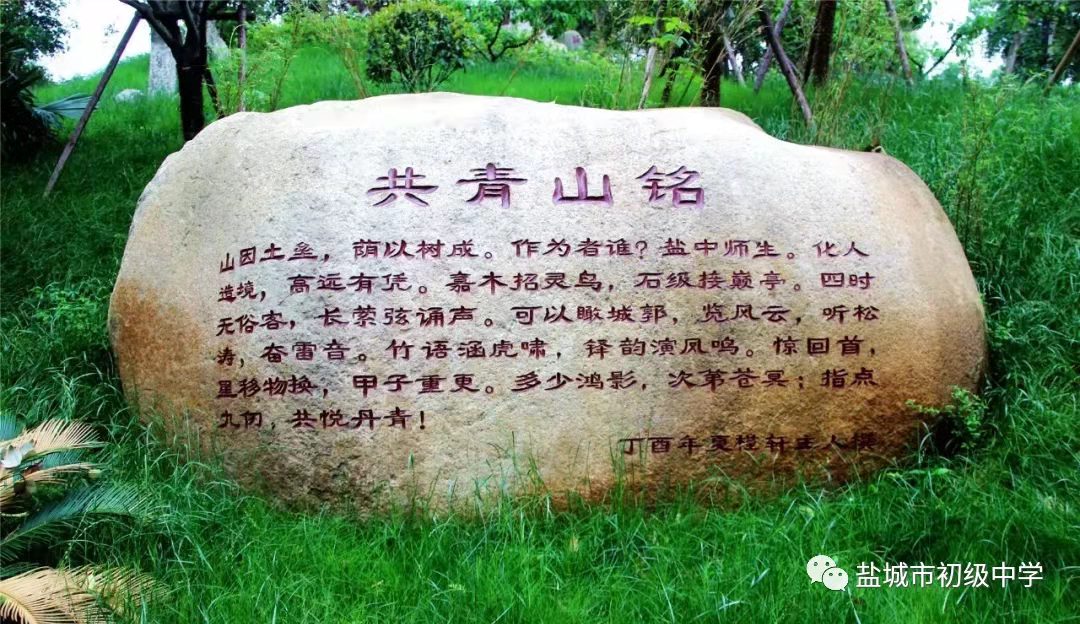 共青山铭
山因土垒，荫以树成。作为者谁？盐中师生。化人
造境，高远有凭。嘉木招灵鸟，石级接巅亭。四时
无俗客，长萦弦诵声。可以瞰城郭，览风云，听松
涛，奋雷音。竹语涵虎啸，铎韵演凤鸣。惊回首，
星移物换，甲子重更。多少鸿影，次第苍冥；指点
九仞，共悦丹青！
丁酉年夏橙轩主人撰
盐城市初级中学